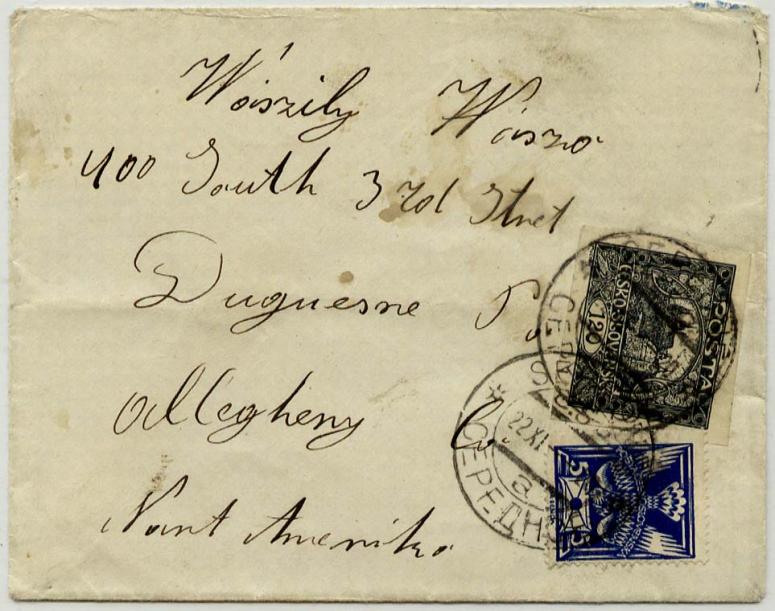 Wászily Wászo
400 South 3 rd Stret
Duguesne P.
Allegheny C.
Nort Amerika.
ČESKO-SLOVENSKÁ
POŠTA
120
SEREDNE
СЕРЕДНЄ
22 XI
a
5 5